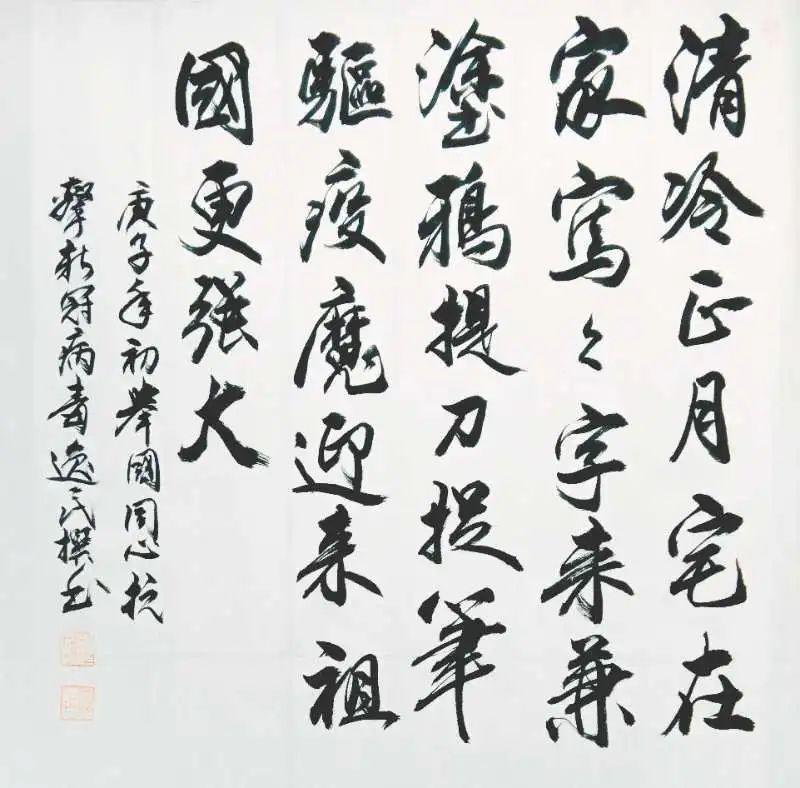 清冷正月宅在
家寫々字来兼
塗鴉提刀捉筆
驅疫魔迎来祖
國更强大
庚子年初舉國同心抗
擊新冠病毒逸民撰书